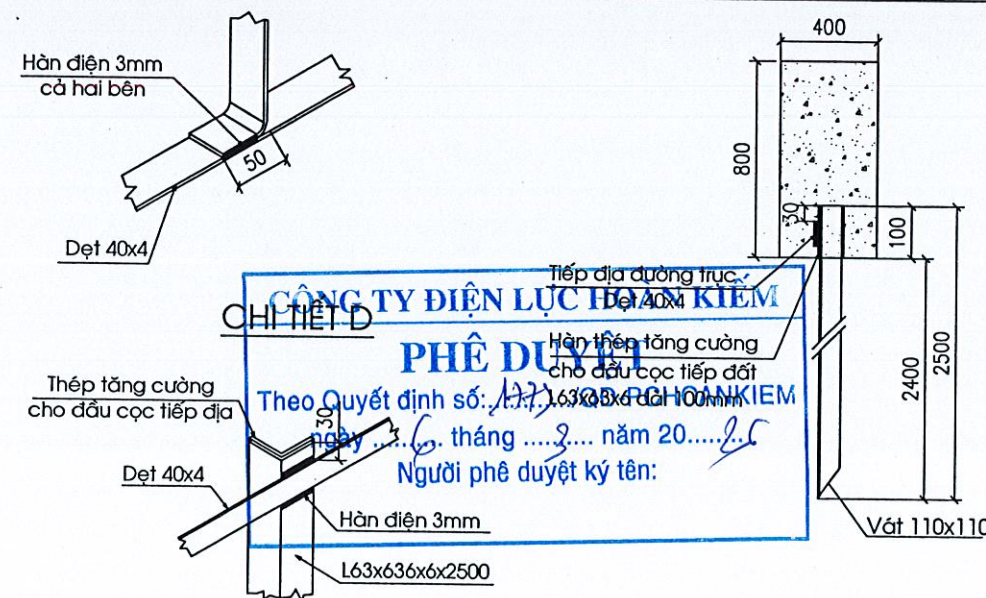 Hàn điện 3mm
cả hai bên
50
Dẹt 40x4
CHI TIẾT D
Thép tăng cường
cho đầu cọc tiếp địa
30
Dẹt 40x4
Hàn điện 3mm
L63x636x6x2500
400
800
30
100
2400
2500
Tiếp địa đường trục
Dẹt 40x4
Hàn thép tăng cường
cho đầu cọc tiếp đất
L63x63x6 dài 100mm
Vát 110x110
CÔNG TY ĐIỆN LỰC HOÀN KIẾM
PHÊ DUYỆT
Theo Quyết định số: /QĐ-PCHOANKIEM
ngày ..... 6 ..... tháng ..... 3 ..... năm 20.....
Người phê duyệt ký tên: